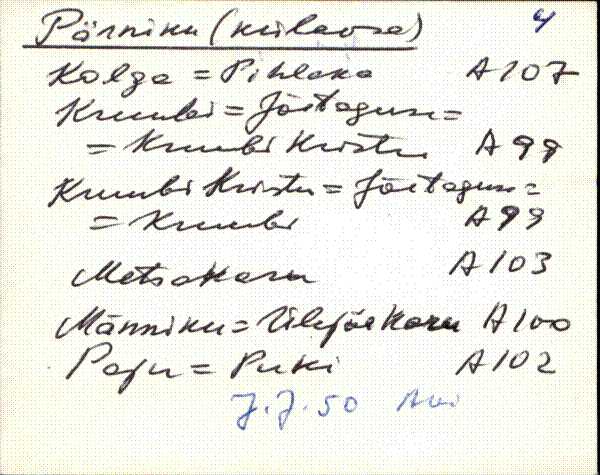 Pärniku (külaosa) 4
Kolga = Pihlaka A107
Kruubi = Jõetaguse =
= Kruubi Kristu A99
Kruubi Kristu = Jõetaguse =
= Kruubi A99
Metsakaru A103
Männiku = Ülejõe Karu A100
Paju = Puki A102
J. J. 50